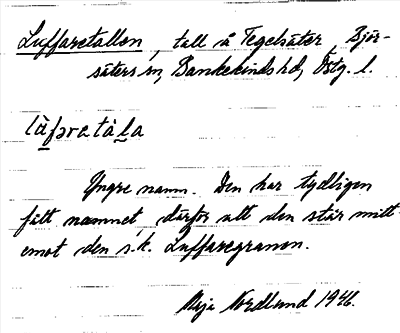 Luffaretallen, tall å Tegelsäter, Björ-
säters sn, Bankekinds hd, Östg. l.
lùfαretàla
Yngre namn. Den har tydligen
fått namnet, därför att den står mitt
emot den s.k. Luffaregranen.
Maja Nordlund 1946.